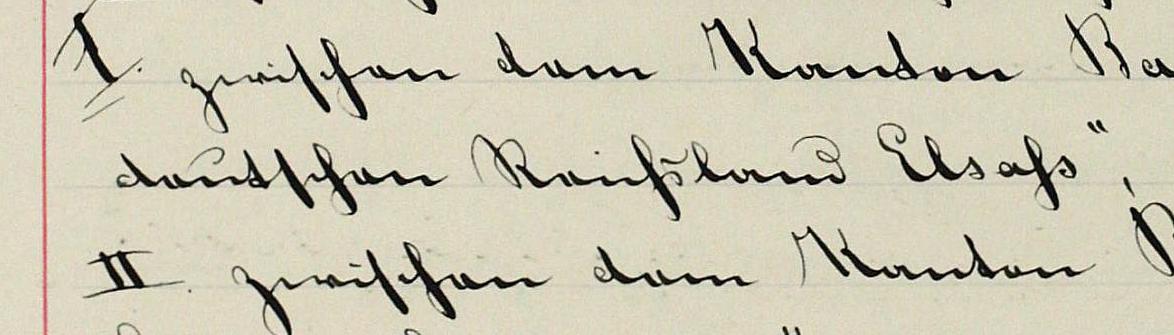 I. zwischen dem Kanton Ba
deutschen Reichsland Elsass",
II. zwischen dem Kanton